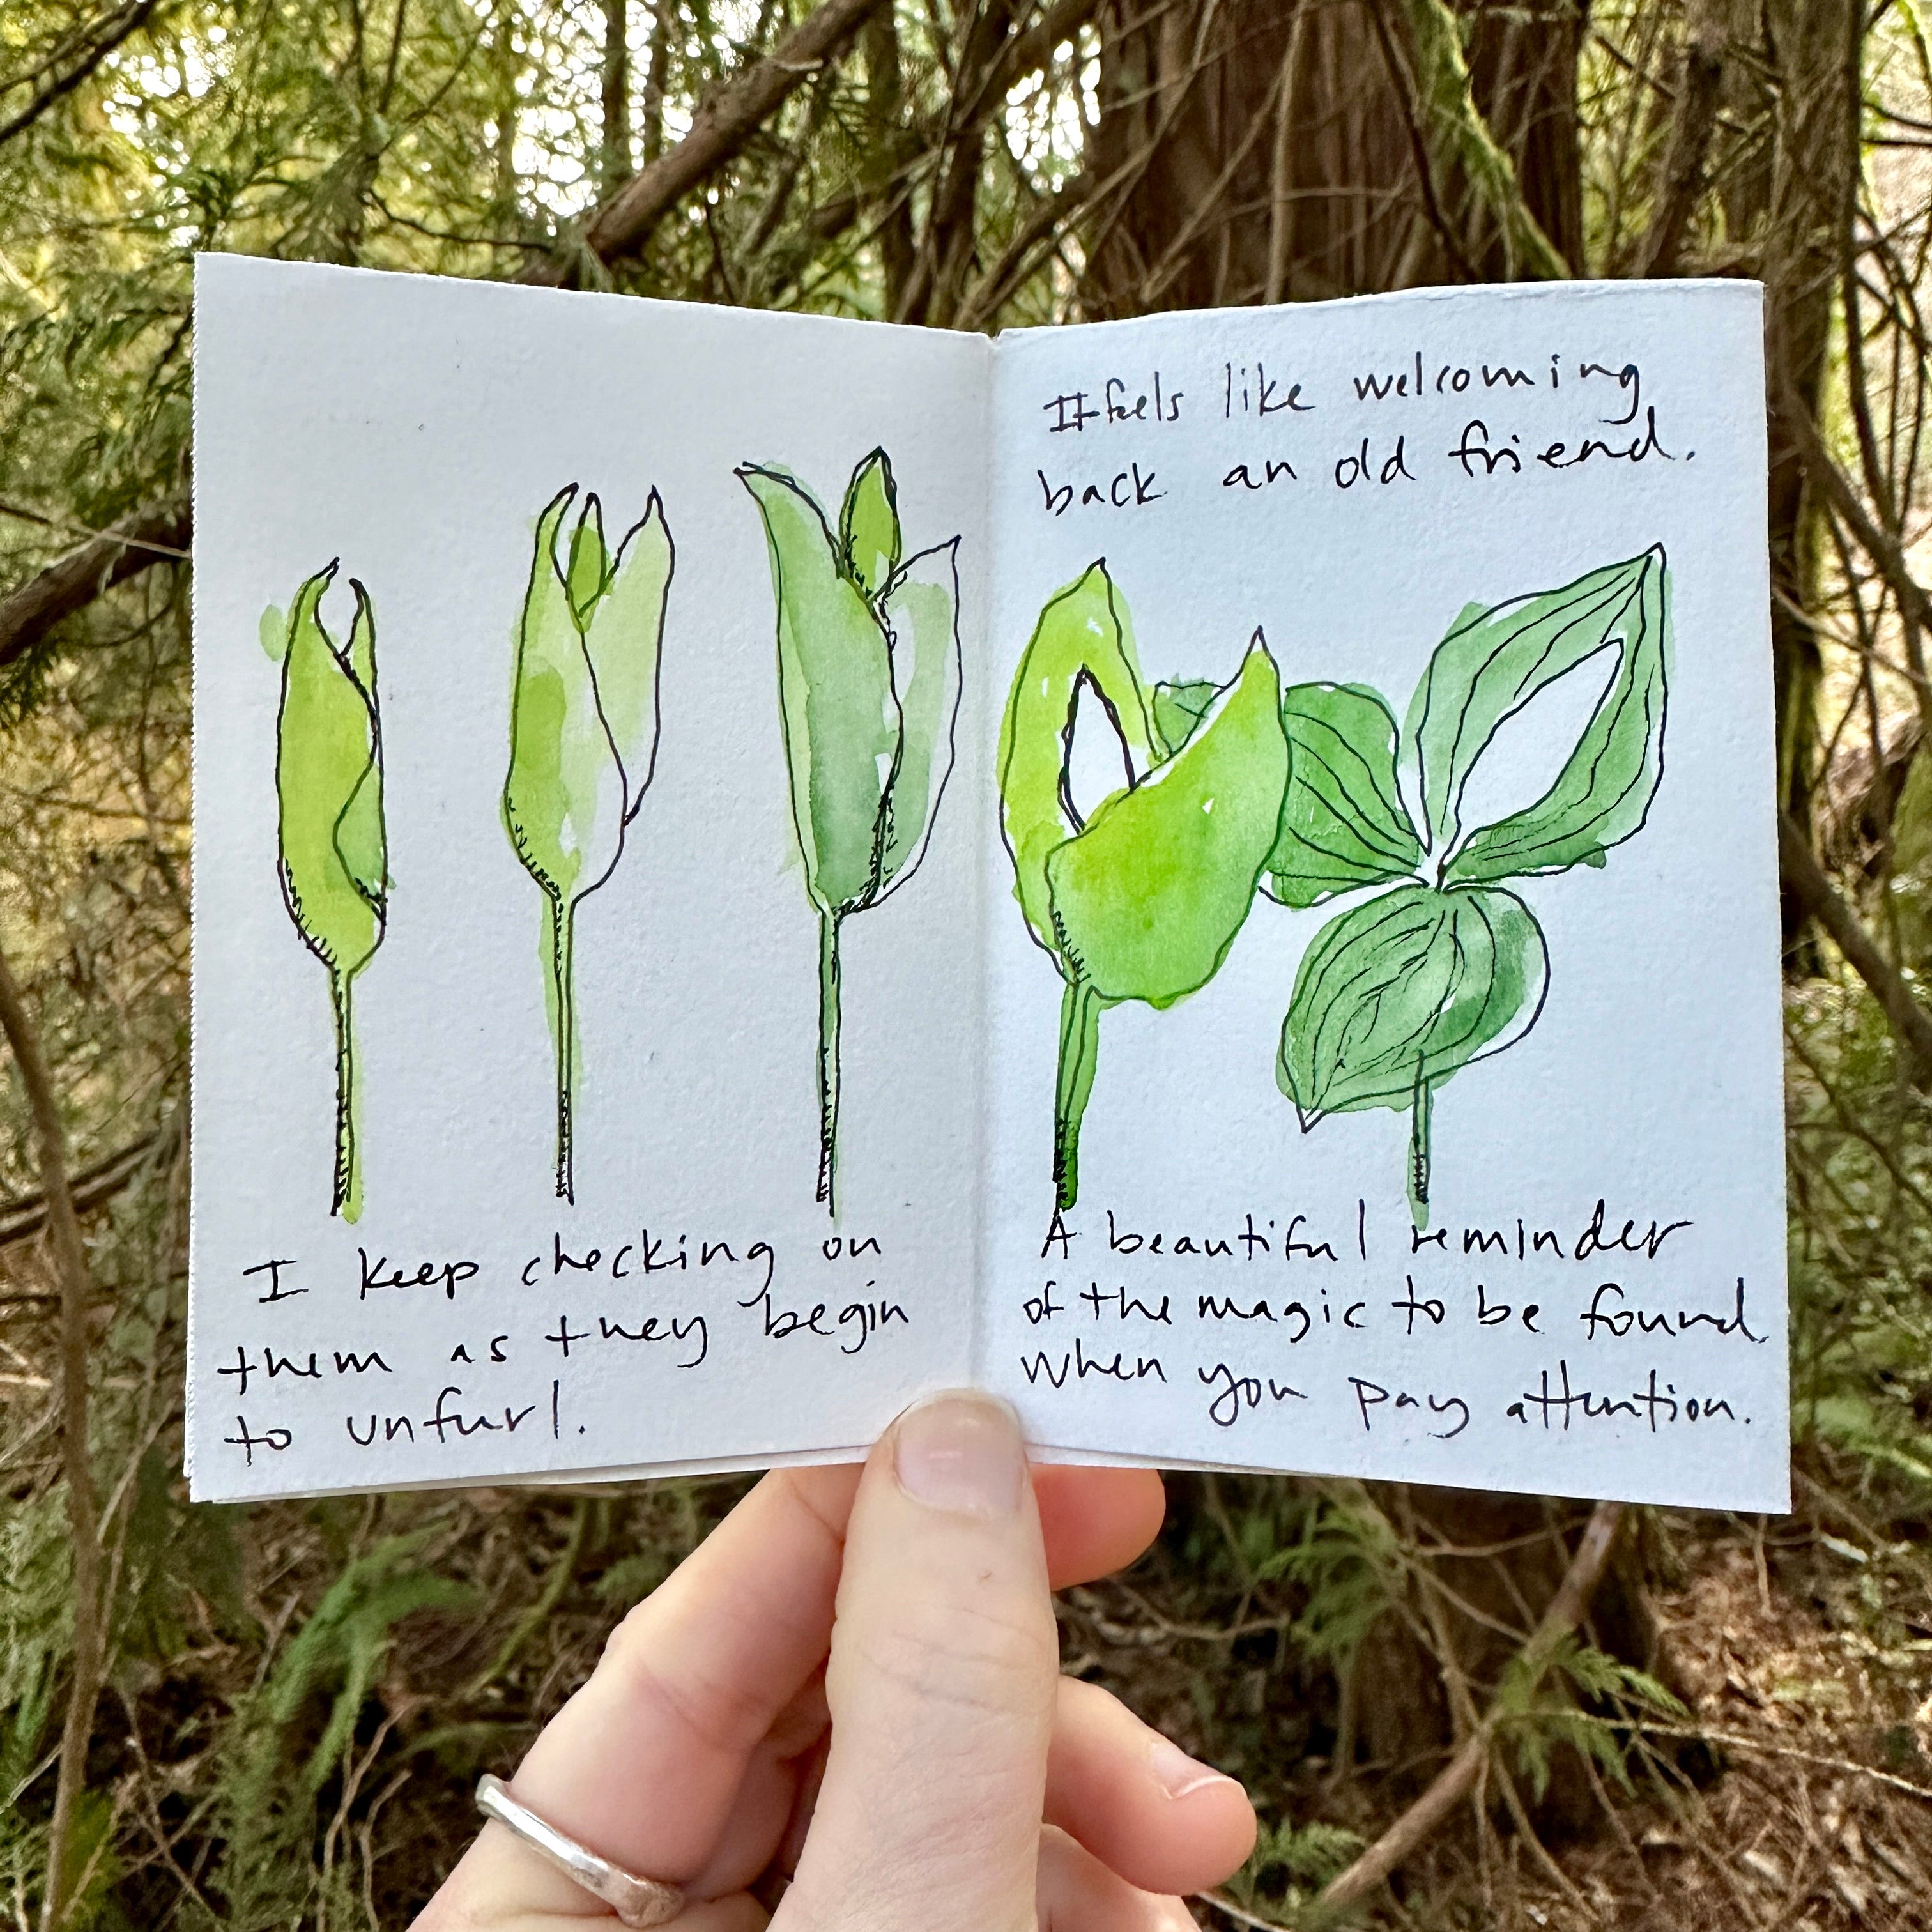 I keep checking on
them as they begin
to unfurl.
It feels like welcoming
back an old friend.
A beautiful reminder
of the magic to be found
when you pay attention.